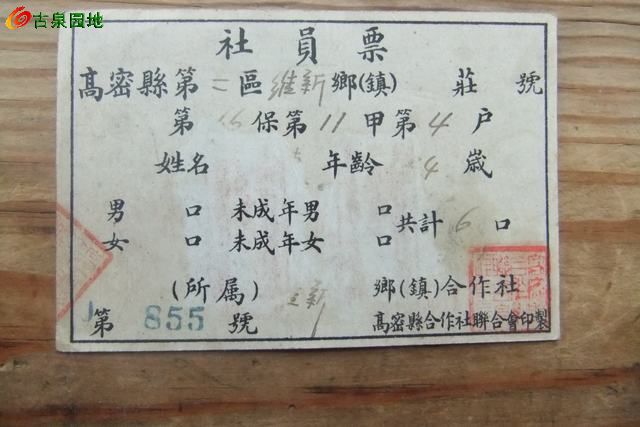 古泉园地
社員票
高密縣第二區維新鄉(鎮) 莊 號
第 保第11甲第4戶
姓名 年齡 歲
男 口 未成年男 口
女 口 未成年女 口 共計6口
(所属) 新 鄉(鎮)合作社
第 855 號 高密縣合作社聯合會印製